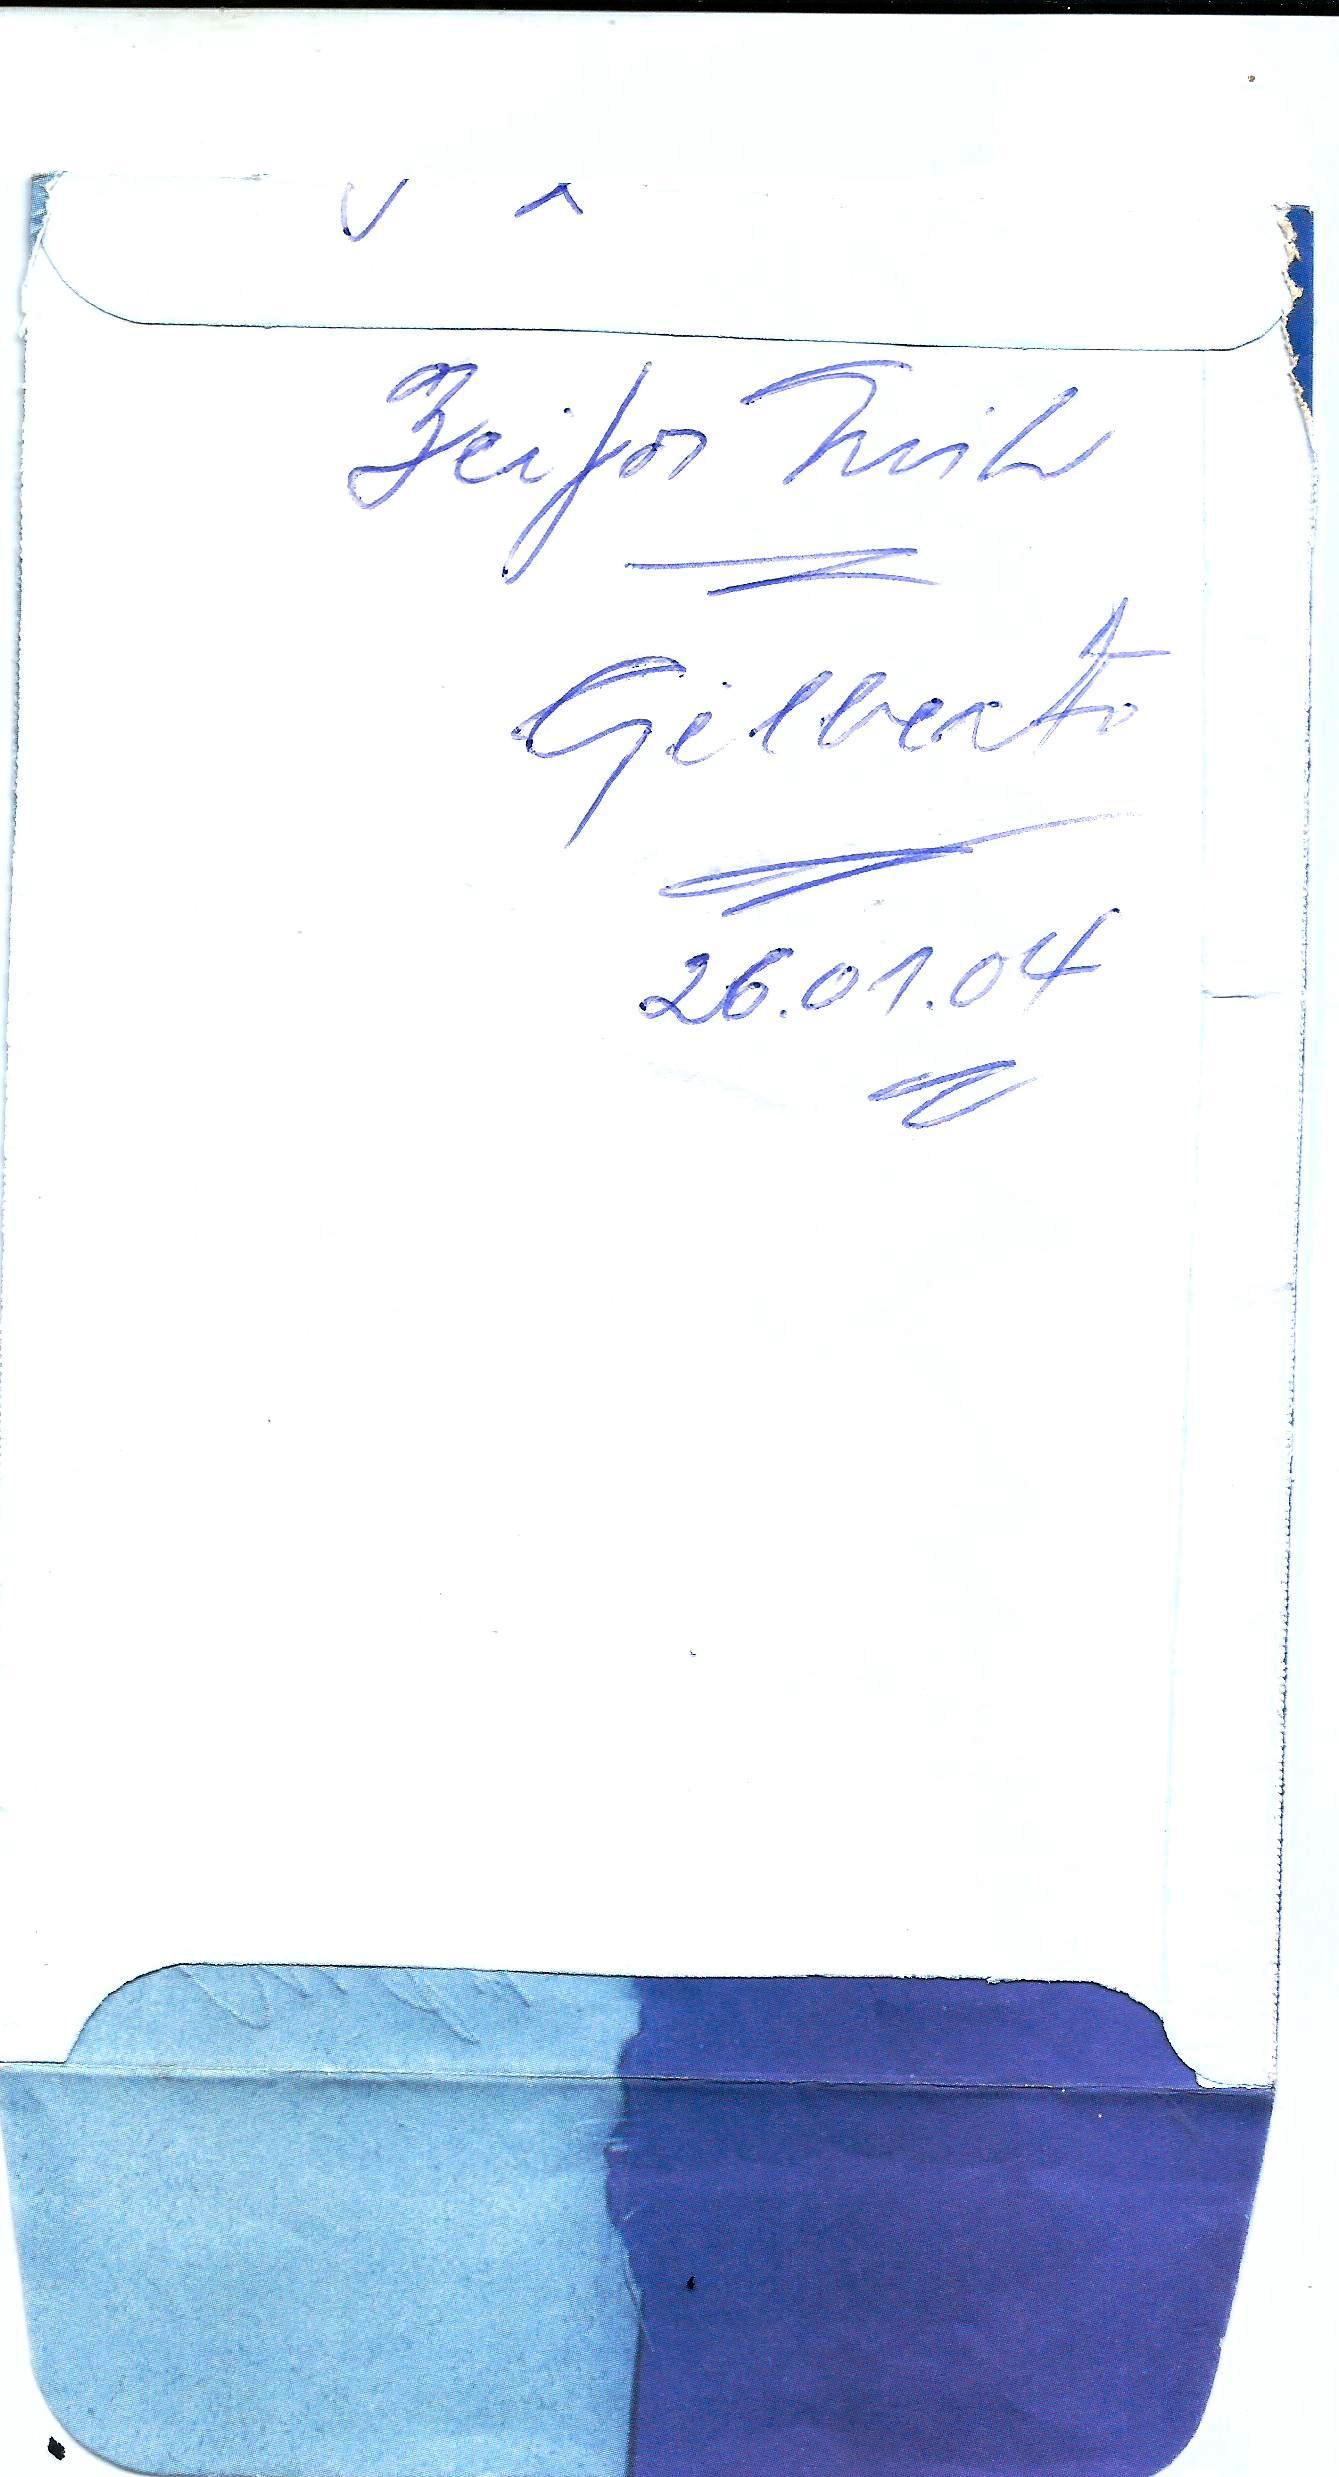 Beijos
Gilberto
26.01.04